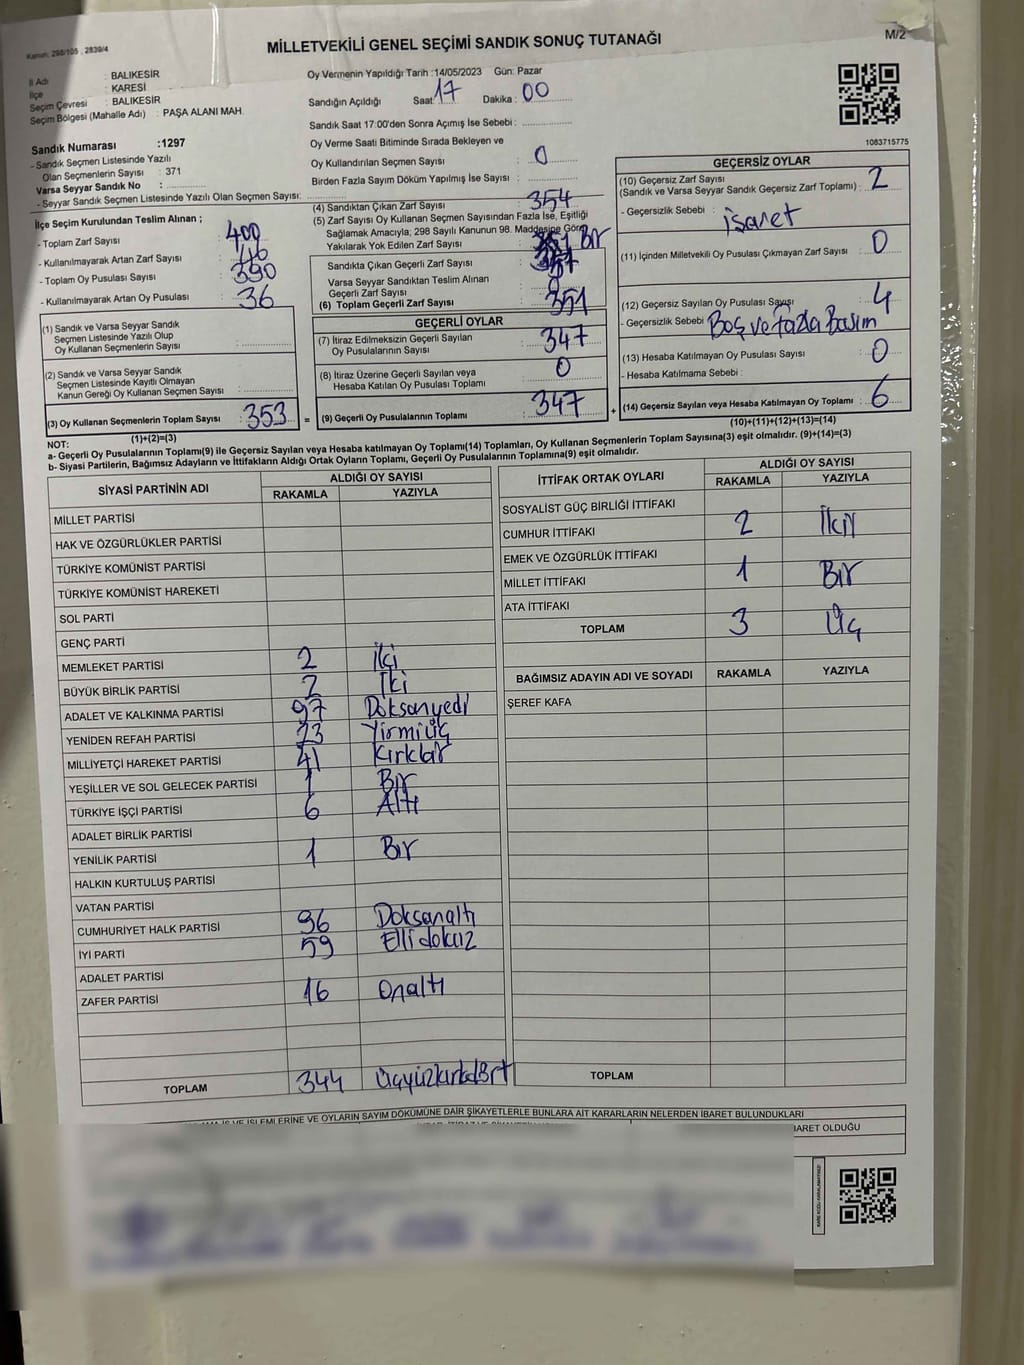 Kanun: 298/105 , 2839/4
M/2
MİLLETVEKİLİ GENEL SEÇİMİ SANDIK SONUÇ TUTANAĞI
İl Adı : BALIKESİR
İlçe : KARESİ
Seçim Çevresi : BALIKESİR
Seçim Bölgesi (Mahalle Adı) : PAŞA ALANI MAH.
Oy Vermenin Yapıldığı Tarih :14/05/2023 Gün: Pazar
Sandığın Açıldığı Saat: 17 Dakika : 00
Sandık Saat 17:00'den Sonra Açımış İse Sebebi :
Oy Verme Saati Bitiminde Sırada Bekleyen ve
Oy Kullandırılan Seçmen Sayısı : 0
Birden Fazla Sayım Döküm Yapılmış İse Sayısı :
1083715775
Sandık Numarası :1297
- Sandık Seçmen Listesinde Yazılı
Olan Seçmenlerin Sayısı : 371
Varsa Seyyar Sandık No :
- Seyyar Sandık Seçmen Listesinde Yazılı Olan Seçmen Sayısı:
İlçe Seçim Kurulundan Teslim Alınan ;
- Toplam Zarf Sayısı : 400
- Kullanılmayarak Artan Zarf Sayısı : 46
- Toplam Oy Pusulası Sayısı : 390
- Kullanılmayarak Artan Oy Pusulası : 36
(1) Sandık ve Varsa Seyyar Sandık
Seçmen Listesinde Yazılı Olup
Oy Kullanan Seçmenlerin Sayısı :
(2) Sandık ve Varsa Seyyar Sandık
Seçmen Listesinde Kayıtlı Olmayan
Kanun Gereği Oy Kullanan Seçmen Sayısı :
(3) Oy Kullanan Seçmenlerin Toplam Sayısı : 353 =
(1)+(2)=(3)
(4) Sandıktan Çıkan Zarf Sayısı : 354
(5) Zarf Sayısı Oy Kullanan Seçmen Sayısından Fazla İse, Eşitliği
Sağlamak Amacıyla; 298 Sayılı Kanunun 98. Maddesine Göre
Yakılarak Yok Edilen Zarf Sayısı : Bir
Sandıkta Çıkan Geçerli Zarf Sayısı : 351
Varsa Seyyar Sandıktan Teslim Alınan
Geçerli Zarf Sayısı : 0
(6) Toplam Geçerli Zarf Sayısı : 351
GEÇERLİ OYLAR
(7) İtiraz Edilmeksizin Geçerli Sayılan
Oy Pusulalarının Sayısı : 347
(8) İtiraz Üzerine Geçerli Sayılan veya
Hesaba Katılan Oy Pusulası Toplamı : 0
(9) Geçerli Oy Pusulalarının Toplamı : 347 +
GEÇERSİZ OYLAR
(10) Geçersiz Zarf Sayısı
(Sandık ve Varsa Seyyar Sandık Geçersiz Zarf Toplamı) : 2
- Geçersizlik Sebebi : işaret
(11) İçinden Milletvekili Oy Pusulası Çıkmayan Zarf Sayısı : 0
(12) Geçersiz Sayılan Oy Pusulası Sayısı : 4
- Geçersizlik Sebebi : Boş ve fazla Basım
(13) Hesaba Katılmayan Oy Pusulası Sayısı : 0
- Hesaba Katılmama Sebebi :
(14) Geçersiz Sayılan veya Hesaba Katılmayan Oy Toplamı : 6
(10)+(11)+(12)+(13)=(14)
NOT:
a- Geçerli Oy Pusulalarının Toplamı(9) ile Geçersiz Sayılan veya Hesaba katılmayan Oy Toplamı(14) Toplamları, Oy Kullanan Seçmenlerin Toplam Sayısına(3) eşit olmalıdır. (9)+(14)=(3)
b- Siyasi Partilerin, Bağımsız Adayların ve İttifakların Aldığı Ortak Oyların Toplamı, Geçerli Oy Pusulalarının Toplamına(9) eşit olmalıdır.
SİYASİ PARTİNİN ADI ALDIĞI OY SAYISI
RAKAMLA YAZIYLA
MİLLET PARTİSİ
HAK VE ÖZGÜRLÜKLER PARTİSİ
TÜRKİYE KOMÜNİST PARTİSİ
TÜRKİYE KOMÜNİST HAREKETİ
SOL PARTİ
GENÇ PARTİ
MEMLEKET PARTİSİ 2 İki
BÜYÜK BİRLİK PARTİSİ 2 İki
ADALET VE KALKINMA PARTİSİ 97 Doksanyedi
YENİDEN REFAH PARTİSİ 23 Yirmiüç
MİLLİYETÇİ HAREKET PARTİSİ 41 Kırkbir
YEŞİLLER VE SOL GELECEK PARTİSİ 1 Bir
TÜRKİYE İŞÇİ PARTİSİ 6 Altı
ADALET BİRLİK PARTİSİ
YENİLİK PARTİSİ 1 Bir
HALKIN KURTULUŞ PARTİSİ
VATAN PARTİSİ
CUMHURİYET HALK PARTİSİ 96 Doksanaltı
İYİ PARTİ 59 Ellidokuz
ADALET PARTİSİ
ZAFER PARTİSİ 16 Onaltı
TOPLAM 344 Üçyüzkırkdört
İTTİFAK ORTAK OYLARI ALDIĞI OY SAYISI
RAKAMLA YAZIYLA
SOSYALİST GÜÇ BİRLİĞİ İTTİFAKI
CUMHUR İTTİFAKI 2 İki
EMEK VE ÖZGÜRLÜK İTTİFAKI
MİLLET İTTİFAKI 1 Bir
ATA İTTİFAKI
TOPLAM 3 Üç
BAĞIMSIZ ADAYIN ADI VE SOYADI RAKAMLA YAZIYLA
ŞEREF KAFA
TOPLAM
İŞ VE İŞLEMLERİNE VE OYLARIN SAYIM DÖKÜMÜNE DAİR ŞİKAYETLERLE BUNLARA AİT KARARLARIN NELERDEN İBARET BULUNDUKLARI
İBARET OLDUĞU